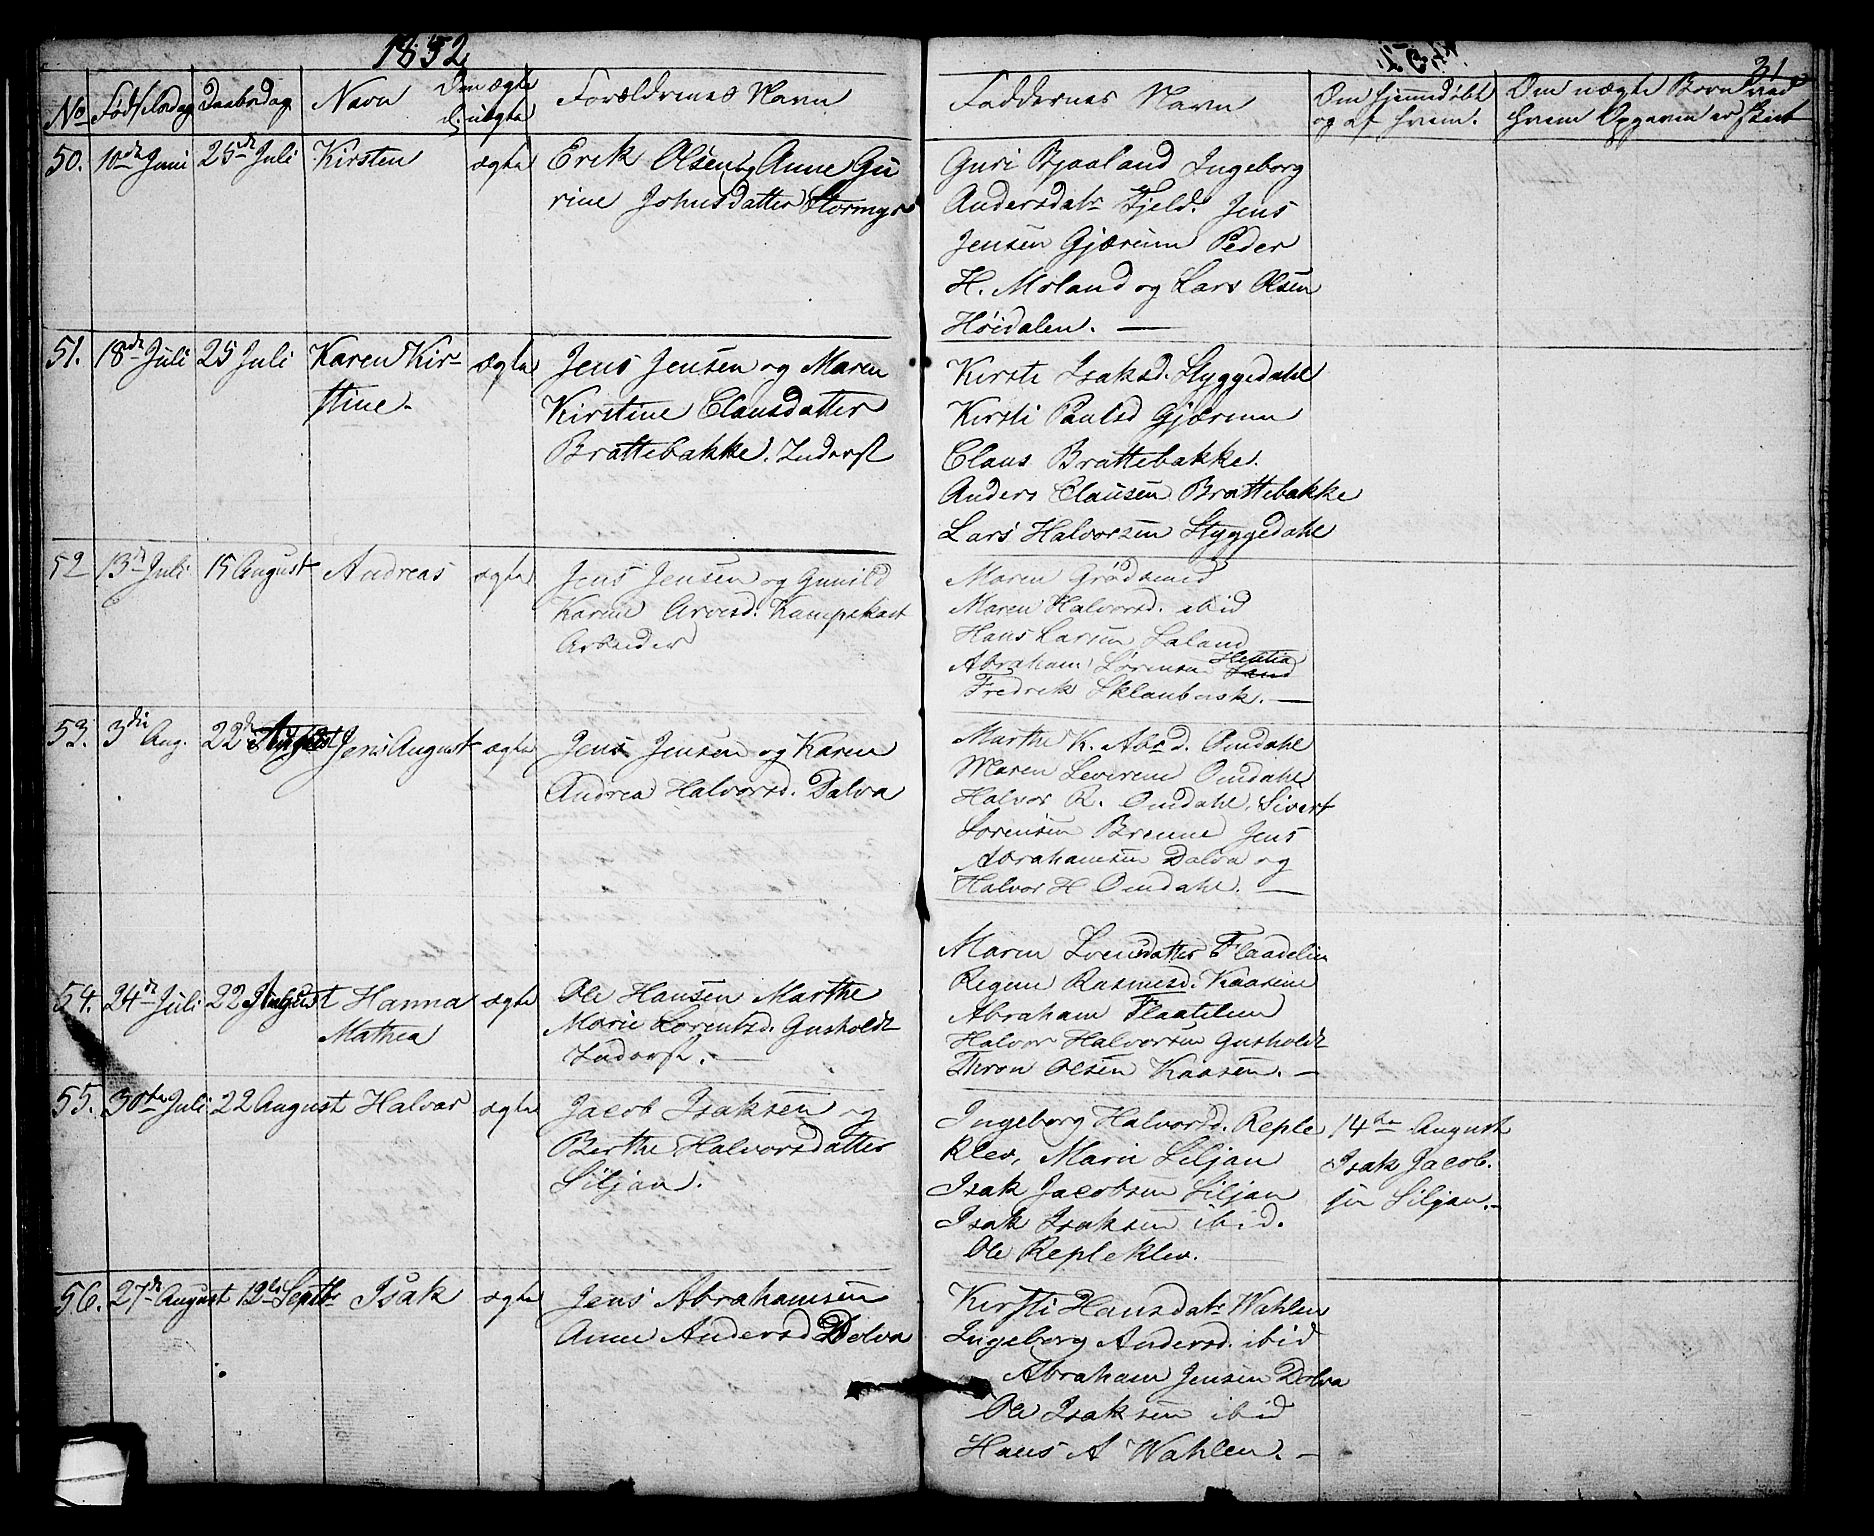 1852
No Fødselsdag Daabsdag Navn Om ægte el. uægte Forældrenes Navn
50. 10de Juni 25de Juli Kirsten ægte Erik Olsen og Anne Gu
rine Johnsdatter Stormyr
51. 18de Juli 25 Juli Karen Kir- ægte Jens Jensen og Maren
stine. Kirstine Clausdatter
Brattebakke. Inderst
52 13de Juli 15 August Andreas ægte Jens Jensen og Gunild
Karine Arvesd. Kampekast
Arbeider
53. 3die Aug. 22de August Jens August ægte Jens Jensen og Karen
Andrea Halvorsd. Dalva
54. 24de Juli 22 August Hanna ægte Ole Hansen Marthe
Mathea Marie Lorentsd. Gusholdt
Inderst. —
55. 30te Juli 22 August Halvor ægte Jacob Isaksen og
Berthe Halvorsdatter
Siljan.
56. 27de August 12te Septbr Isak ægte Jens Abrahamsen
Anne Andersd Dolva
31
Faddernes Navn Om hjemmedøbt og af hvem. Om uægte Børn ved hvem Opgaven er skeet
Guri Bjaaland Ingeborg
Andersdatr Fjeld. Jens
Jensen Gjærum Peder
H. Moland og Lars Olsen
Høidalen. —
Kirsti Isaksd. Styggedahl
Kirsti Paulsd Gjærum
Claus Brattebakke.
Anders Clausen Brattebakke
Lars Halvorsen Styggedahl
Maren Grødsmed
Maren Halvorsd. ibid
Hans Larsen Laland
Abraham Sørensen
Fredrik Sklaubersk. —
Marthe K. Abrd. Omdahl
Maren Severine Omdahl
Halvor R. Omdahl, Sivert
Sørensen Brenne Jens
Abrahamsen Dalva og
Halvor H Omdahl. —
Maren Svensdatter Flaadelin
Regine Rasmusd. Kaasene
Abraham Flaatelin
Halvor Halvorsen Gusholdt
Thron Olsen Kaasen. —
Ingeborg Halvorsd. Reple 14de August
klev, Marie Siljan Isak Jacob-
Isak Jacobsen Siljan sen Siljan. -
Isak Isaksen ibid.
Ole Repleklev.
Kirsti Hansdatr Wahlen
Ingeborg Andersd. ibid
Abraham Jensen Dolva
Ole Isaksen ibid
Hans A Wahlen. —